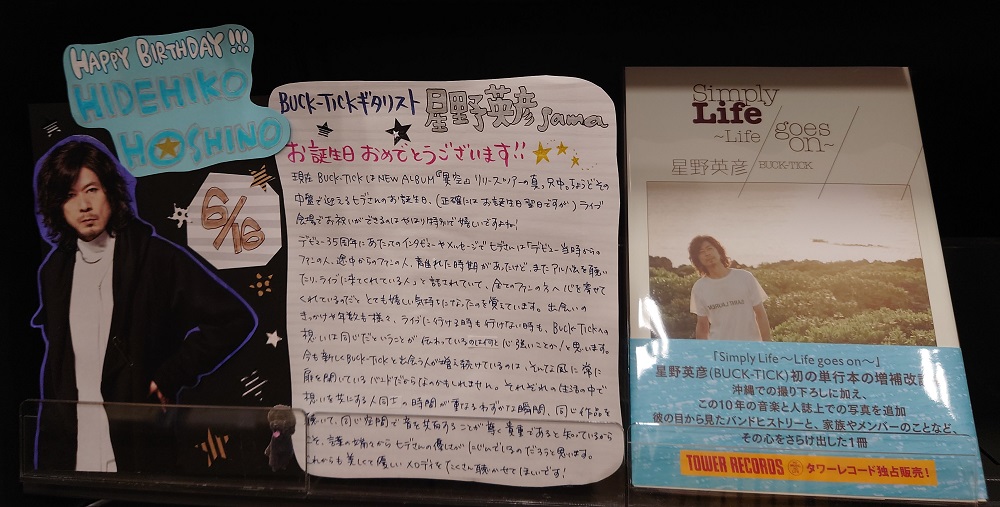 HAPPY BIRTHDAY!!!
HIDEHIKO
HOSHINO
6/16
BUCK-TICKギタリスト 星野英彦sama
お誕生日おめでとうございます!!
現在BUCK-TICKはNEW ALBUM『異空』リリース&ツアーの真っ只中。ちょうどその
中盤で迎えるヒデさんのお誕生日、(正確にはお誕生日翌日ですが)ライブ
会場でお祝いができるのはやはり特別で嬉しいですよね!
デビュー35周年にあたってのインタビューやメッセージでヒデさんは「デビュー当時からの
ファンの人、途中からのファンの人、離れた時期があったけど、またアルバムを聴い
たり、ライブに来てくれている人」と話されていて、全てのファンの方へ心を寄せて
くれているのだととても嬉しい気持ちになったのを覚えています。出会いの
きっかけや年数も様々、ライブに行ける時も行けない時も、BUCK-TICKへの
想いは同じだということが伝わっているのは何と心強いことか!と思います。
今も新しくBUCK-TICKと出会う人が増え続けているのは、そんな風に常に
扉を開いているバンドだからなのかもしれません。それぞれの生活の中で
想いを共にする人同士の時間が重なるわずかな瞬間、同じ作品を
聴いて、同じ空間で音を共有することが尊く貴重であると知っているから
こそ、言葉の端々からヒデさんの優しさがにじんでいるのだろうと思います。
これからも美しくて優しいメロディをたくさん聴かせてほしいです!
Simply
Life
~Life
goes
on~
星野英彦
BUCK-TICK
「Simply Life~Life goes on~」
星野英彦(BUCK-TICK)初の単行本の増補改訂
沖縄での撮り下ろしに加え、
この10年の音楽と人誌上での写真を追加
彼の目から見たバンドヒストリーと、家族やメンバーのことなど、
その心をさらけ出した1冊
TOWER RECORDS タワーレコード独占販売!